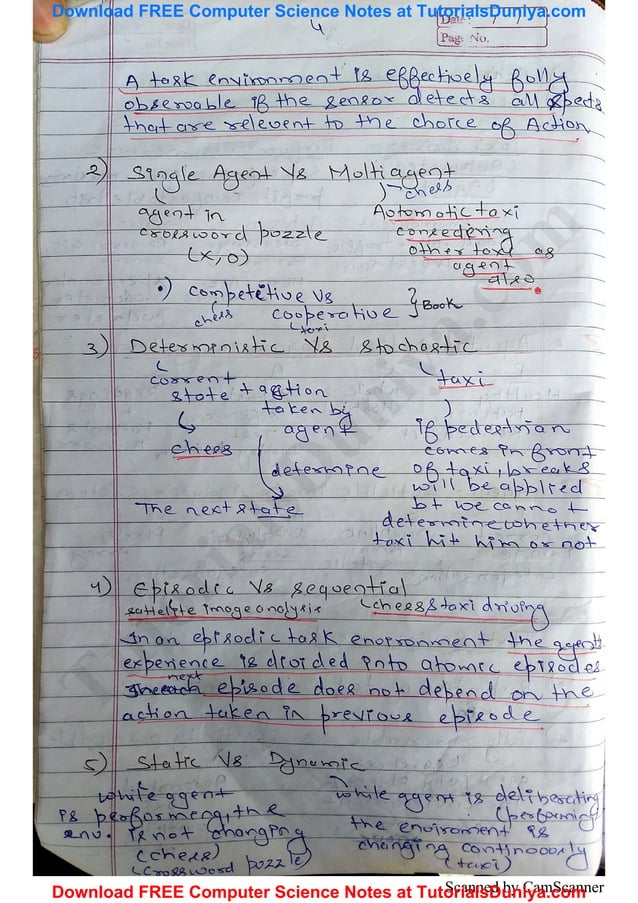 Download FREE Computer Science Notes at TutorialsDuniya.com
4
Date: / /
Page No.
A task environment is effectively fully
observable if the sensor detects all aspects
that are relevent to the choice of Action
2) Single Agent Vs Multiagent
chess
agent in
crossword puzzle
(X, O)
Automatic taxi
consedering
other taxi as
agent
also.
•) competetive Vs
cooperative } Book
chess
taxi
3) Deterministic Vs stochastic
current
state + action
taken by
agent
chess
determine
The next state
taxi
if pedestrian
comes in front
of taxi, breaks
will be applied
bt we cannot
determine whether
taxi hit him or not
4) Episodic Vs sequential
sattelite image analysis
chess & taxi driving
In an episodic task environment the agent
experience is divided into atomic episodes
next
The each episode does not depend on the
action taken in previous episode
5) Static Vs Dynamic
while agent
is performeng, the
env. is not changing
(chess)
(crossword puzzle)
while agent is deliberating
(performing
the enviroment is
changing continuously
(taxi)
Scanned by CamScanner
Download FREE Computer Science Notes at TutorialsDuniya.com